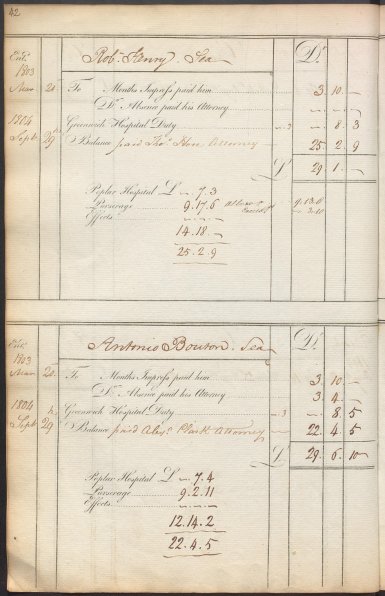 42
Robt. Henry. Sea Dr.
Ent.
1803
Mar 20. To Months Impress paid him 3. 10. —
Do. Absence paid his Attorney — — —
1804 Greenwich Hospital Duty — 8. 3
Sept. 29 Balance paid Attorney 25. 2. 9
£ 29. 1. —
Poplar Hospital £ — 7. 3
Purserage 9. 17. 6
Effects — — —
14. 18. —
25. 2. 9
Antonio Bouton. Sea Dr.
Ent.
1803
Mar 20. To Months Impress paid him 3. 10. —
Do. Absence paid his Attorney 3. 4. —
1804 Greenwich Hospital Duty — 8. 5
Sept 29 Balance paid Alexr. Clark Attorney 22. 4. 5
£ 29. 6. 10
Poplar Hospital £ — 7. 4
Purserage 9. 2. 11
Effects — — —
12. 14. 2
22. 4. 5